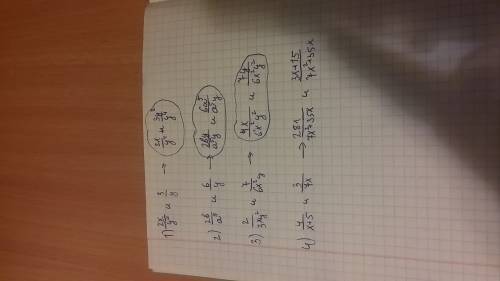 1) 2x/y⁴ и 3/y → 2x/y⁴ и 3y³/y⁴
2) 26/a³ и 6/y → 26y/a³y и 6a³/a³y
3) 2/3xy² и 7/6x²y → 4x/6x²y² и 7y/6x²y²
4) 4/x+5 и 3/7x → 28x/7x²+35x и 3x+15/7x²+35x